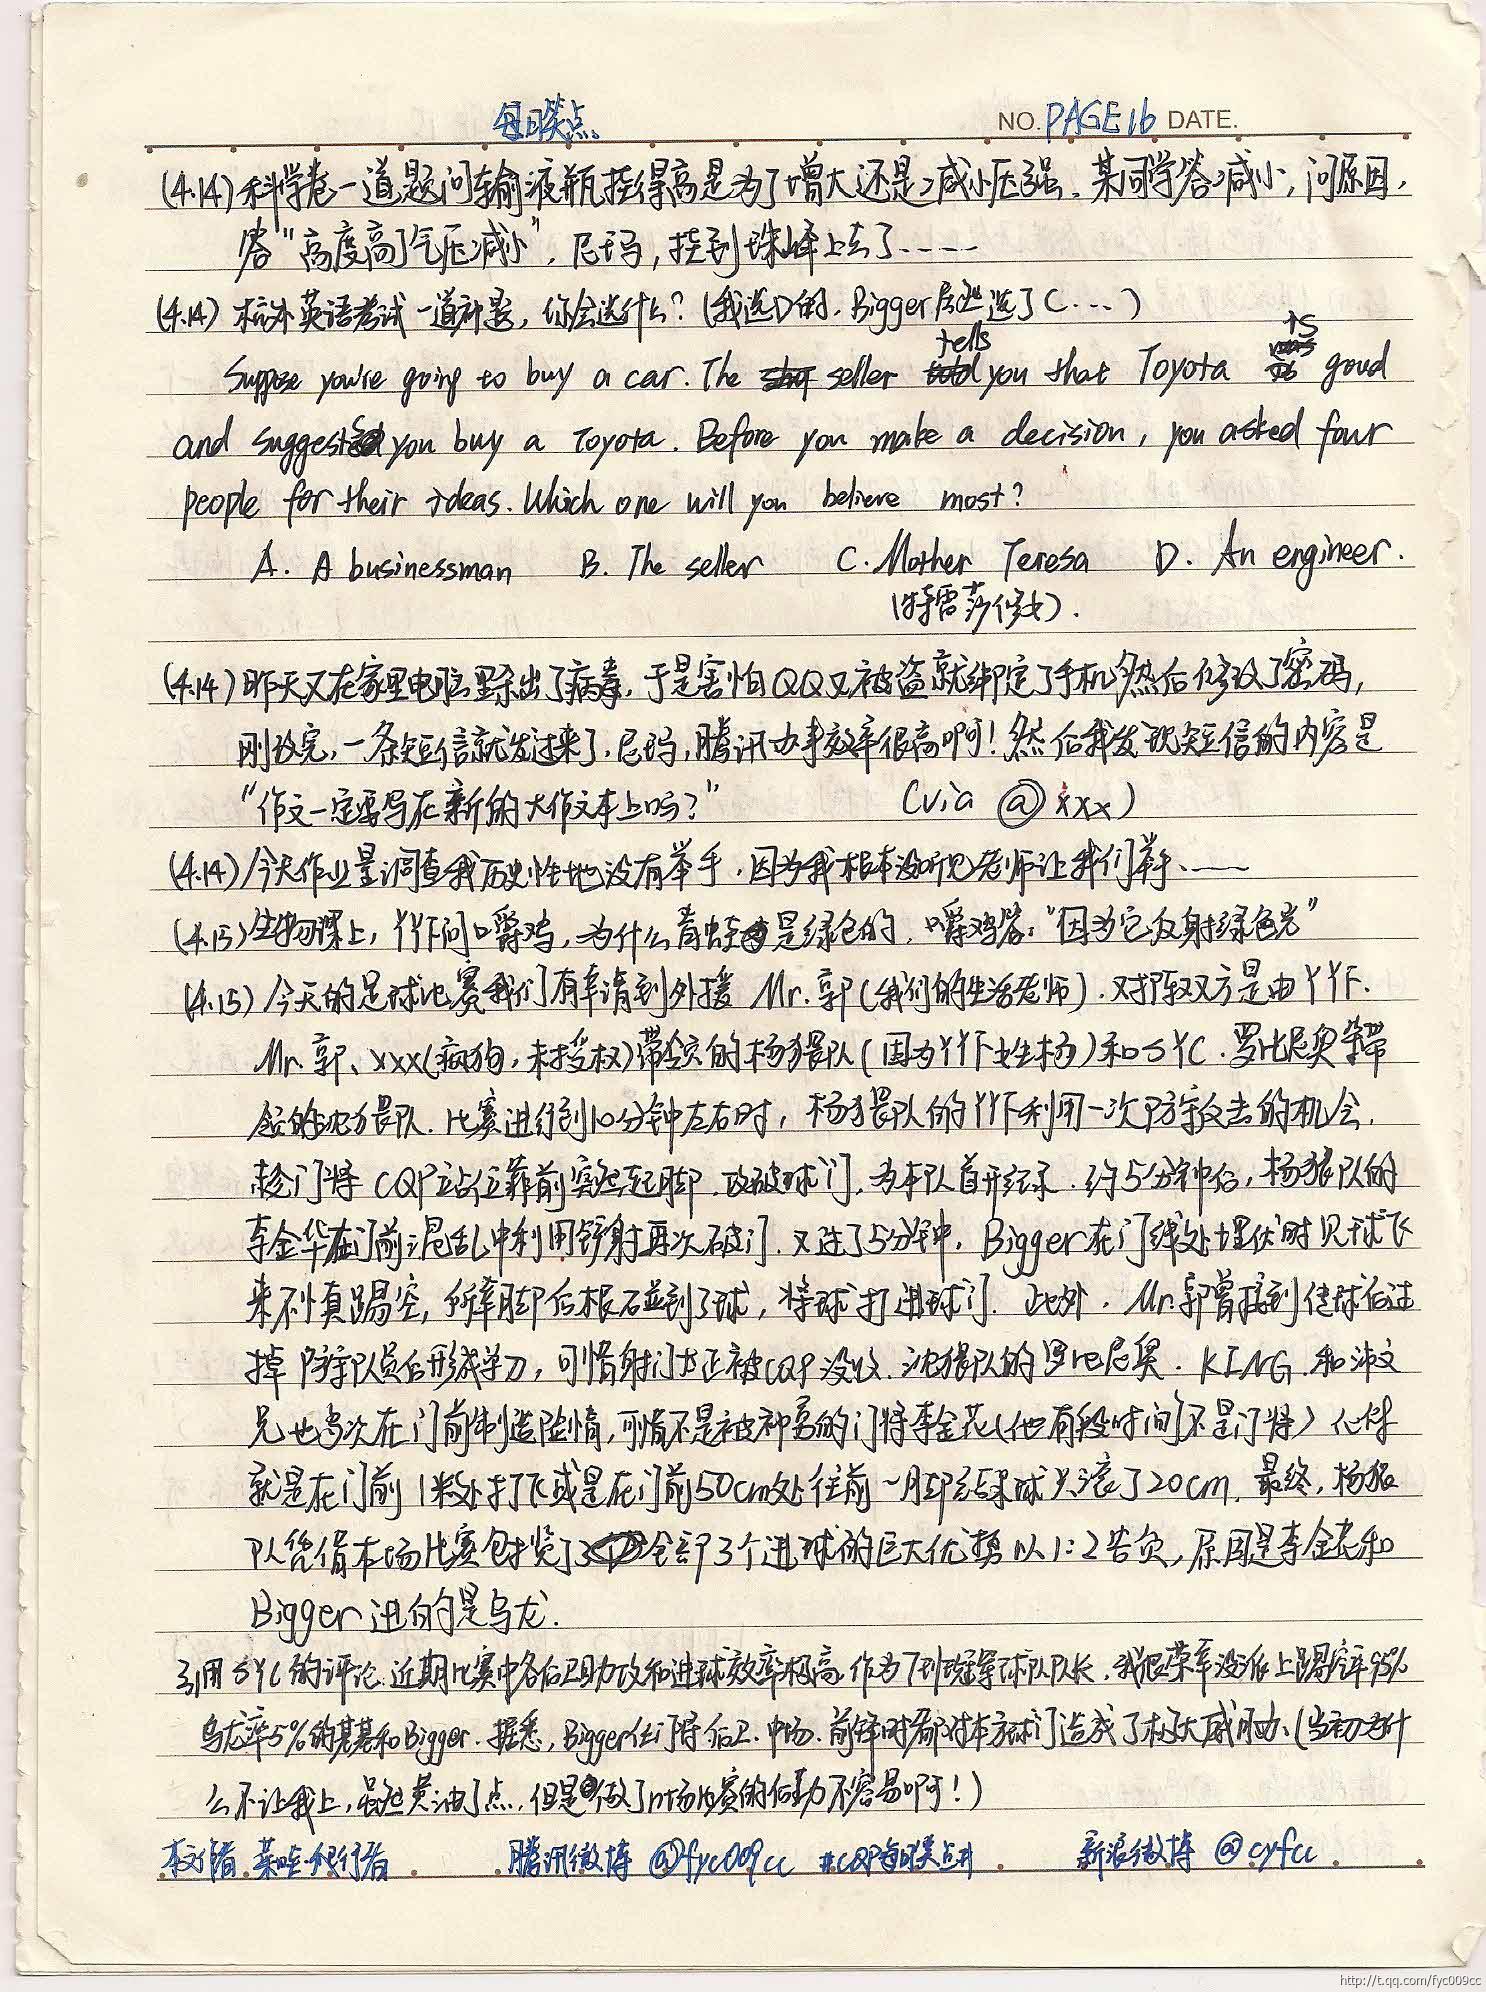 每日笑点
NO. PAGE16 DATE.
(4.14) 科学卷一道题问输液瓶挂得高是为了增大还是减小压强。某同学答减小，问原因，
答“高度高了气压减小”，尼玛，挂到珠峰上去了……
(4.14) 英语考试一道补题，你会选什么？(我选D的，Bigger居然选了C...)
Suppose you're going to buy a car. The seller tells you that Toyota is good
and suggests you buy a Toyota. Before you make a decision, you asked four
people for their ideas. Which one will you believe most?
A. A businessman B. The seller C. Mother Teresa D. An engineer.
(特雷莎修女).
(4.14) 昨天又在家里电脑里杀出了病毒，于是害怕QQ又被盗就绑定了手机然后修改了密码，
刚改完，一条短信就发过来了，尼玛，腾讯办事效率很高啊！然后我发现短信的内容是
“作文一定要写在新的大作文本上吗？” (via @xxx)
(4.14) 今天作业量调查我历史性地没有举手，因为我根本没听见老师让我们举手……
(4.15) 生物课上，丫丫下问嚼鸡，为什么青蛙是绿色的，嚼鸡答：“因为它反射绿色光”
(4.15) 今天的足球比赛我们有幸请到外援 Mr.郭(我们的生活老师)．对阵双方是由丫丫下．
Mr.郭、xxx(疯狗，未授权)带领的杨猥队(因为丫丫下姓杨)和SYC．罗比尼奥等带
领的沈猥队．比赛进行到10分钟左右时，杨猥队的丫丫下利用一次防守反击的机会，
趁门将CQP站位靠前突然起脚，攻破球门，为本队首开纪录．约5分钟后，杨猥队的
李金华在门前混乱中利用铲射再次破门．又过了5分钟，Bigger在门线处埋伏时见球飞
来不慎踢空，所幸脚后根碰到了球，将球打进球门．此外，Mr.郭曾接到传球后过
掉防守队员后形成单刀，可惜射门太正被CQP没收．沈猥队的罗比尼奥．KING．和沛文
兄也多次在门前制造险情，可惜不是被神勇的门将李金花(他有段时间不是门将)化解
就是在门前1米处打飞或是在门前50cm处往前一脚结果球只滚了20cm．最终，杨猥
队凭借本场比赛包揽了全部3个进球的巨大优势以1:2告负，原因是李金花和
Bigger进的是乌龙．
引用SYC的评论：近期比赛中各后卫助攻和进球效率极高，作为7班冠军球队队长，我很荣幸没派上踢空率95%
乌龙率5%的某基和Bigger．据悉，Bigger任门将、后卫、中场、前锋时都对本方球门造成了极大威胁．(当初为什
么不让我上，虽然黄油了点，但是做了n场比赛的后勤不容易啊！)
本文作者 菜哇·银行者 腾讯微博 @fyc009cc #CQP每日笑点# 新浪微博 @cyfcc
http://t.qq.com/fyc009cc